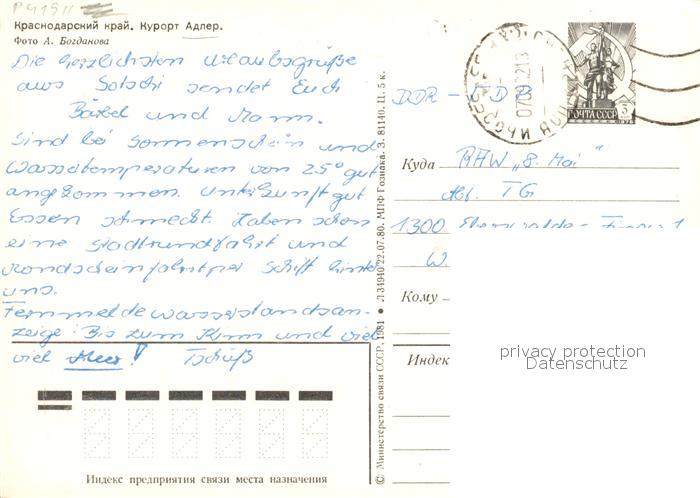 P4 1911
Краснодарский край. Курорт Адлер.
Фото А. Богданова
Die herzlichsten Urlaubsgrüße
aus Sotschi sendet Euch
Bärbel und Mann.
Sind bei Sonnenschein und
Wassertemperaturen von 25° gut
angekommen. Unterkunft gut
Essen schmeckt. Haben schon
eine Stadtrundfahrt und
Mondscheinfahrt per Schiff hinter
uns.
Fernmeldewasserstandsan-
zeige: Bis zum Kinn und viel
viel Meer! Tschüß
Индекс предприятия связи места назначения
© Министерство связи СССР, 1981 ● Л 34940 22.07.80. МПФ Гознака. З. 81140. Ц. 5 к.
ПОЧТА СССР
DDR -
Куда RAW „8. Mai"
Abt. TG
1300
W.
Кому
Индек
privacy protection
Datenschutz